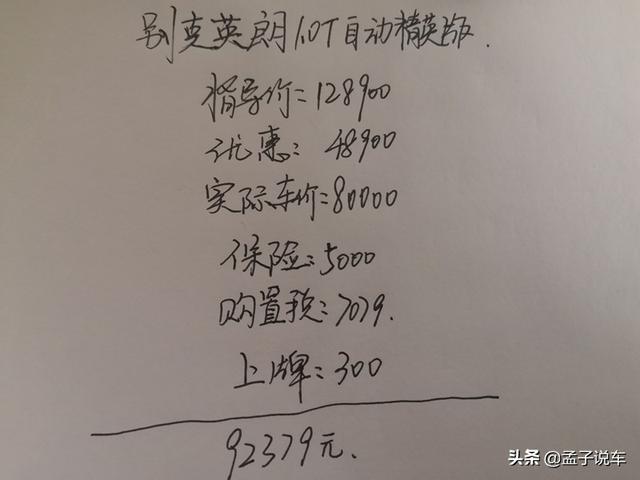 别克英朗1.0T自动精英版.
指导价=128900
优惠: 48900
实际车价=80000
保险:5000
购置税:7079.
上牌:300
92379元.
头条 @孟子说车